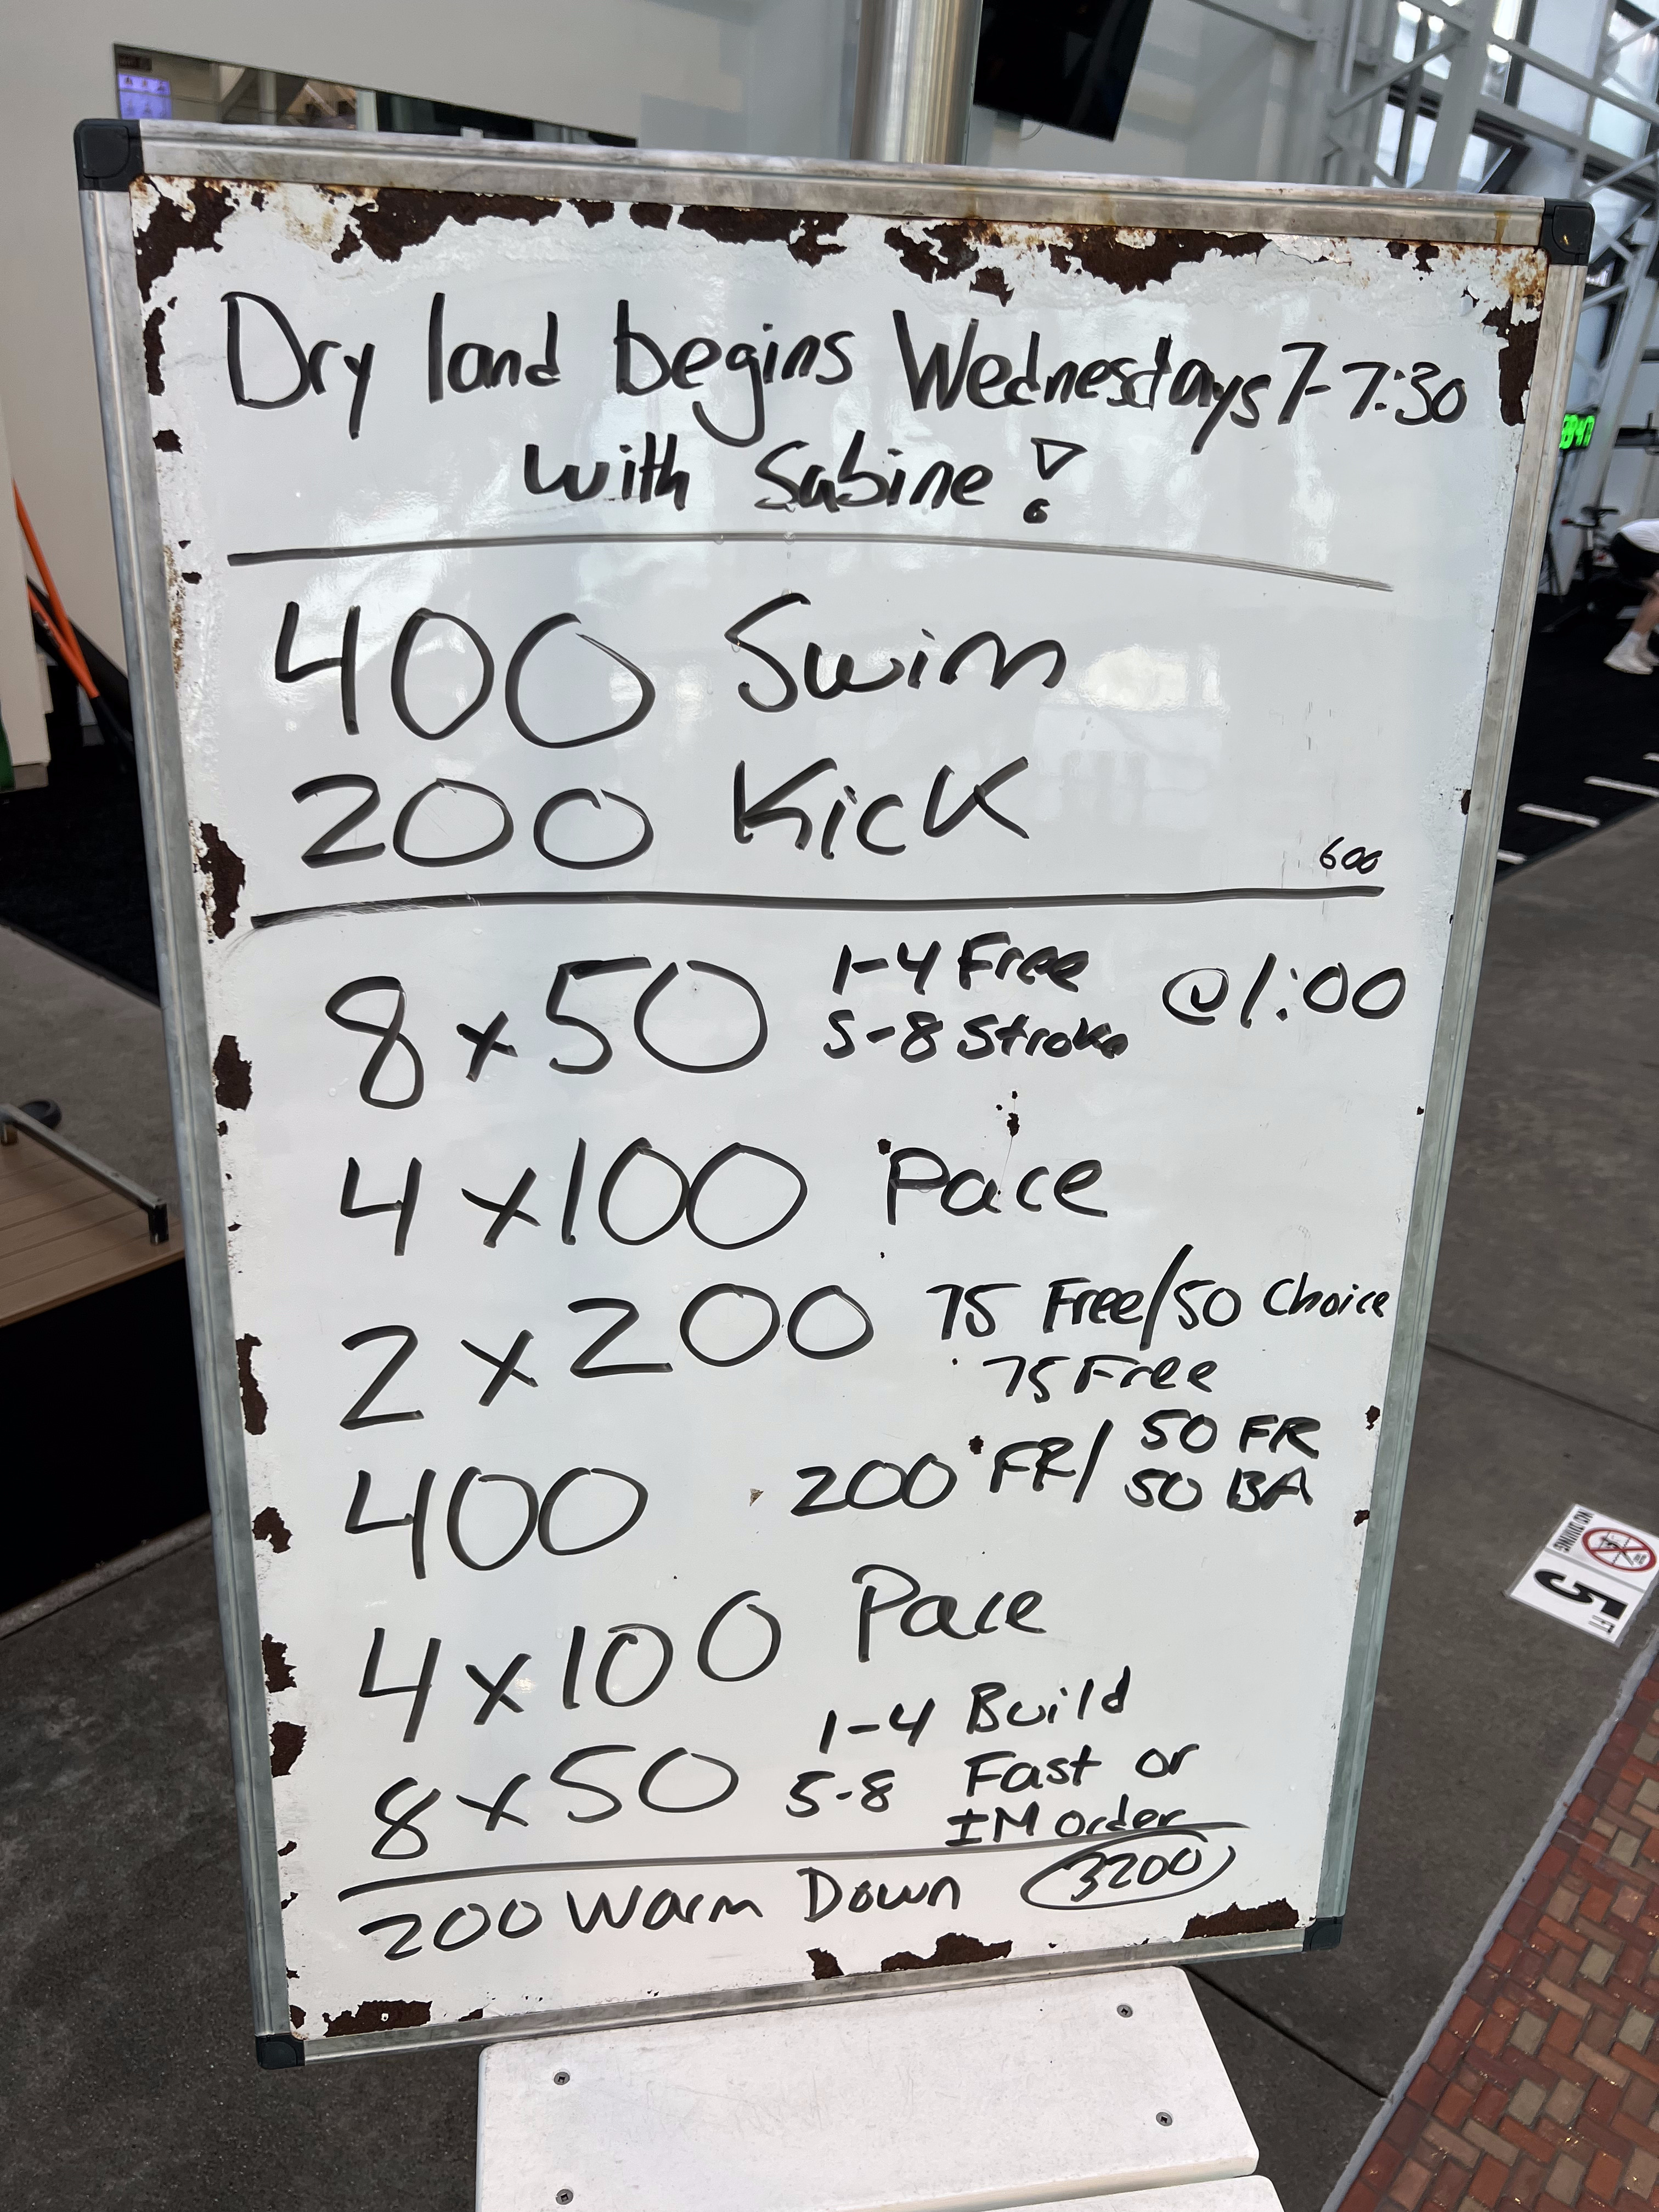 Dry land begins Wednesdays 7-7:30
with Sabine!
400 Swim
200 Kick
600
8x50 1-4 Free @1:00
5-8 Stroke
4x100 Pace
2x200 75 Free/50 Choice
75 Free
400 200 FR/ 50 FR
50 BA
4x100 Pace
8x50 1-4 Build
5-8 Fast or
IM order
200 Warm Down 3200
NO DIVING
5 FT